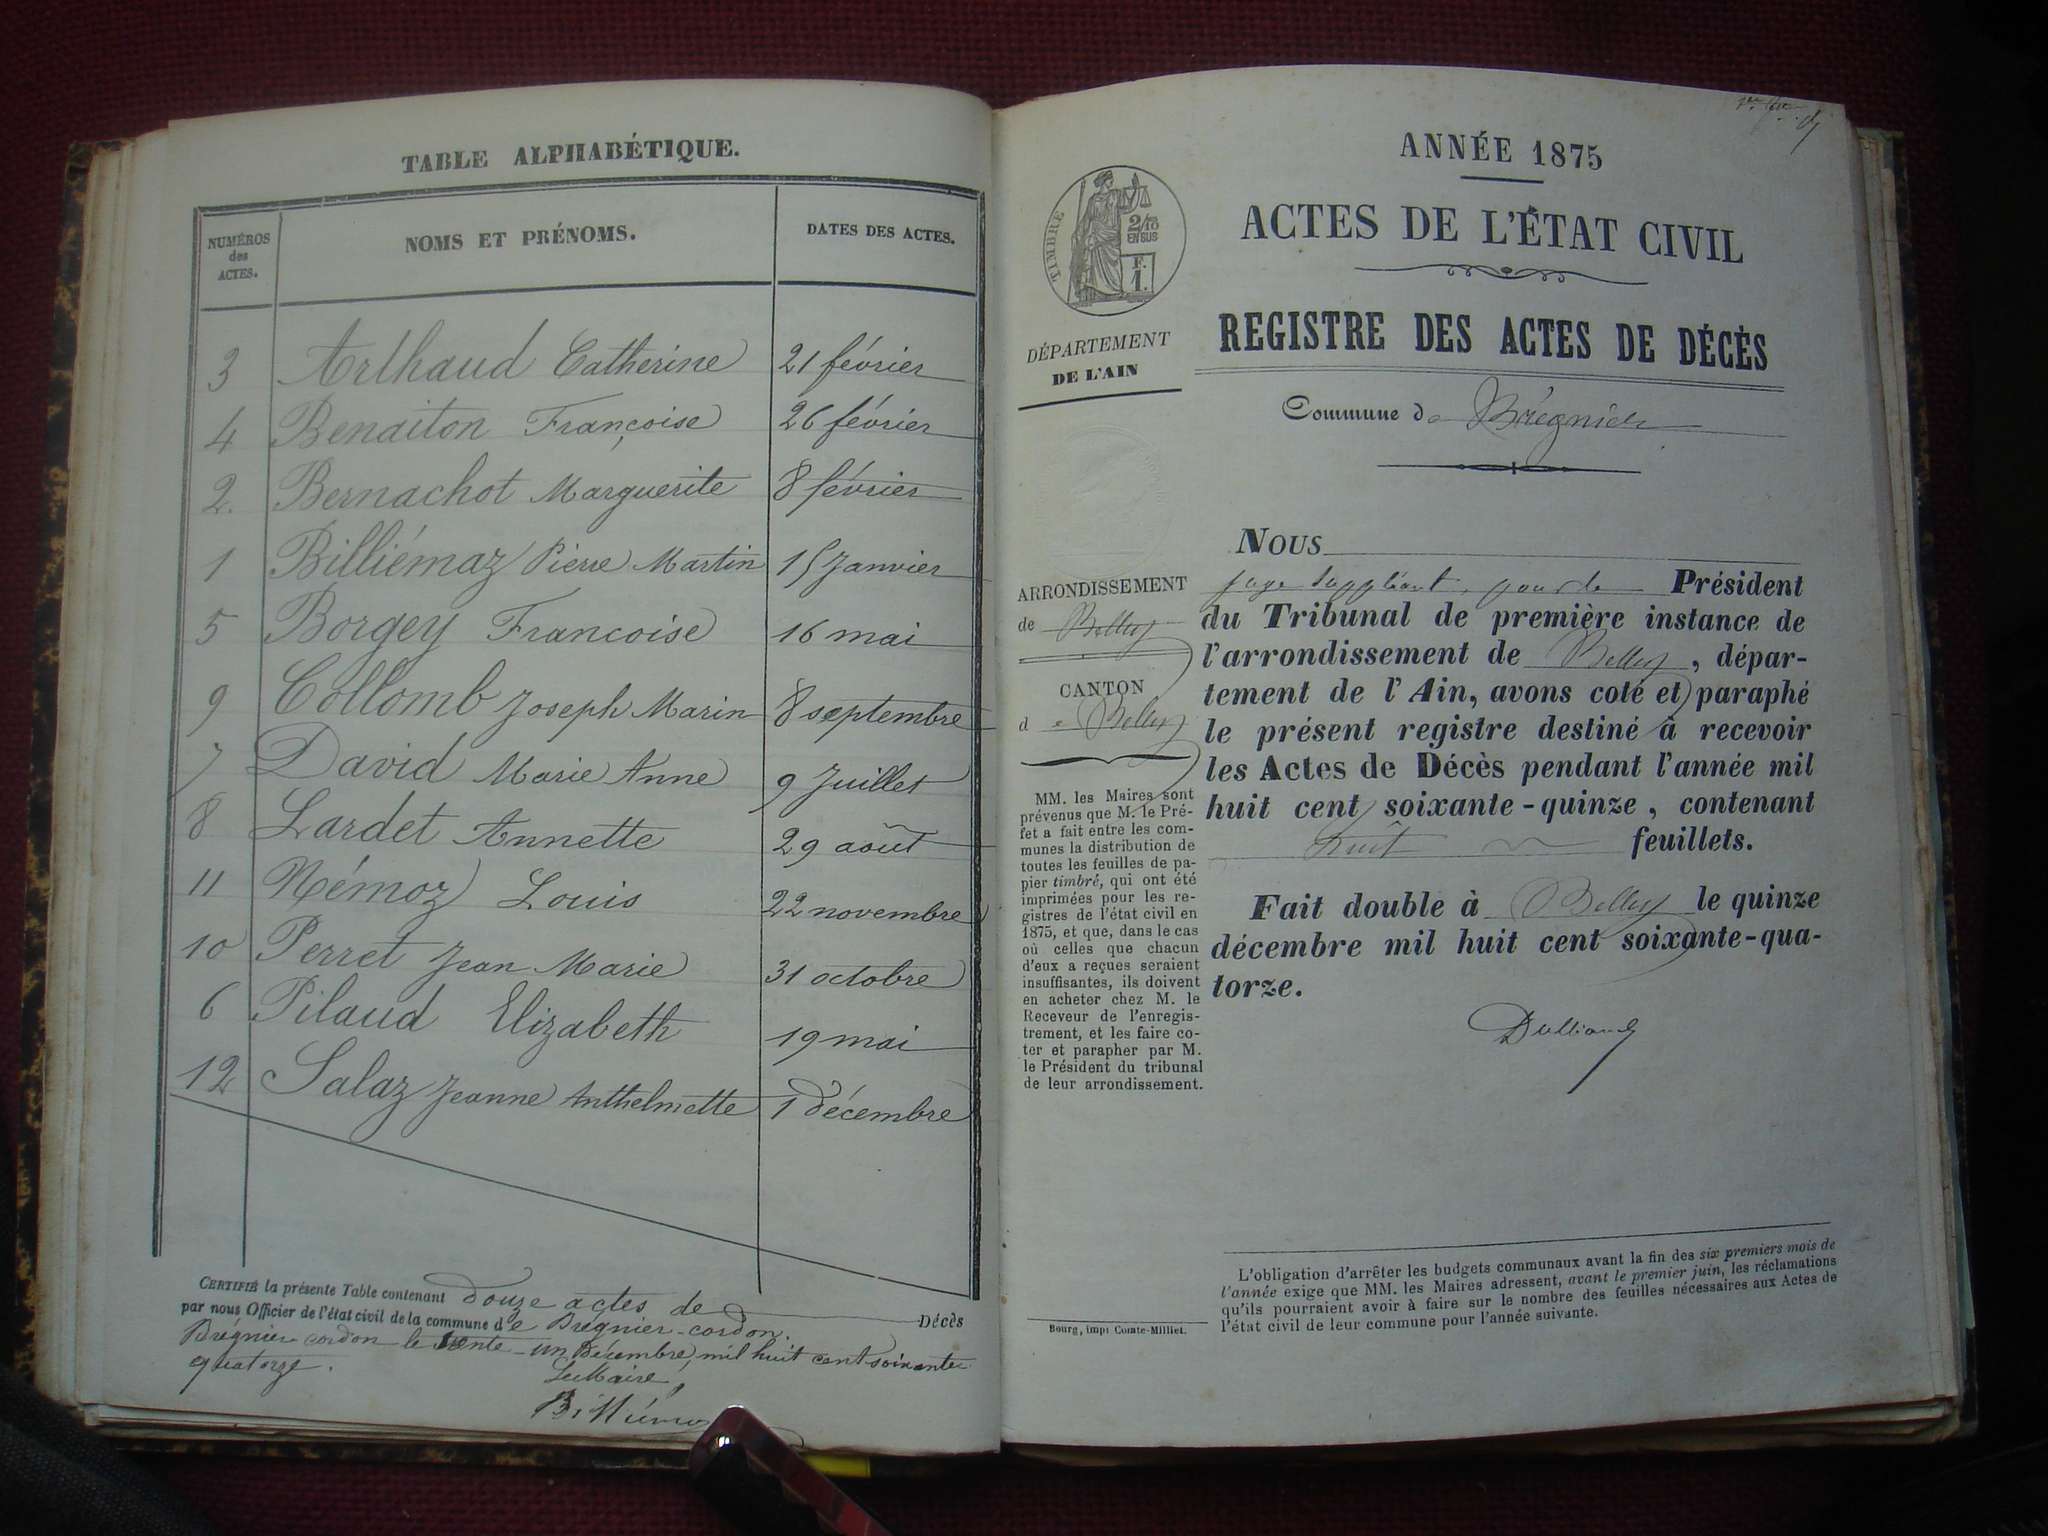 TABLE ALPHABÉTIQUE.
NUMÉROS des ACTES. NOMS ET PRÉNOMS. DATES DES ACTES.
3 Arthaud Catherine 21 février
4 Benaiton Françoise 26 février
2. Bernachot Marguerite 8 février
1 Billiémaz Pierre Martin 15 Janvier
5 Borgey Francoise 16 mai
9 Collomb Joseph Marin 8 septembre
7 David Marie Anne 9 Juillet
8 Lardet Annette 29 août
11 Némoz Louis 22 novembre
10 Perret Jean Marie 31 octobre
6 Pilaud Elizabeth 19 mai
12 Salaz Jeanne Anthelmette 1 décembre
CERTIFIÉ la présente Table contenant douze actes de Décès
par nous Officier de l'état civil de la commune de Brégnier-cordon.
Brégnier-cordon le trente-un Décembre, mil huit cent soixante
quatorze.
Le Maire,
Billiémaz
ANNÉE 1875
ACTES DE L'ÉTAT CIVIL
REGISTRE DES ACTES DE DÉCÈS
Commune de Brégnier
TIMBRE
2/10
EN SUS
F.
1.
DÉPARTEMENT
DE L'AIN
ARRONDISSEMENT
de Belley
CANTON
de Belley
MM. les Maires sont
prévenus que M. le Pré-
fet a fait entre les com-
munes la distribution de
toutes les feuilles de pa-
pier timbré, qui ont été
imprimées pour les re-
gistres de l'état civil en
1875, et que, dans le cas
où celles que chacun
d'eux a reçues seraient
insuffisantes, ils doivent
en acheter chez M. le
Receveur de l'enregis-
trement, et les faire co-
ter et parapher par M.
le Président du tribunal
de leur arrondissement.
NOUS
juge suppléant, pour le Président
du Tribunal de première instance de
l'arrondissement de Belley, dépar-
tement de l'Ain, avons coté et paraphé
le présent registre destiné à recevoir
les Actes de Décès pendant l'année mil
huit cent soixante-quinze, contenant
huit feuillets.
Fait double à Belley le quinze
décembre mil huit cent soixante-qua-
torze.
L'obligation d'arrêter les budgets communaux avant la fin des six premiers mois de
l'année exige que MM. les Maires adressent, avant le premier juin, les réclamations
qu'ils pourraient avoir à faire sur le nombre des feuilles nécessaires aux Actes de
l'état civil de leur commune pour l'année suivante.
Bourg, imp. Comte-Milliet.